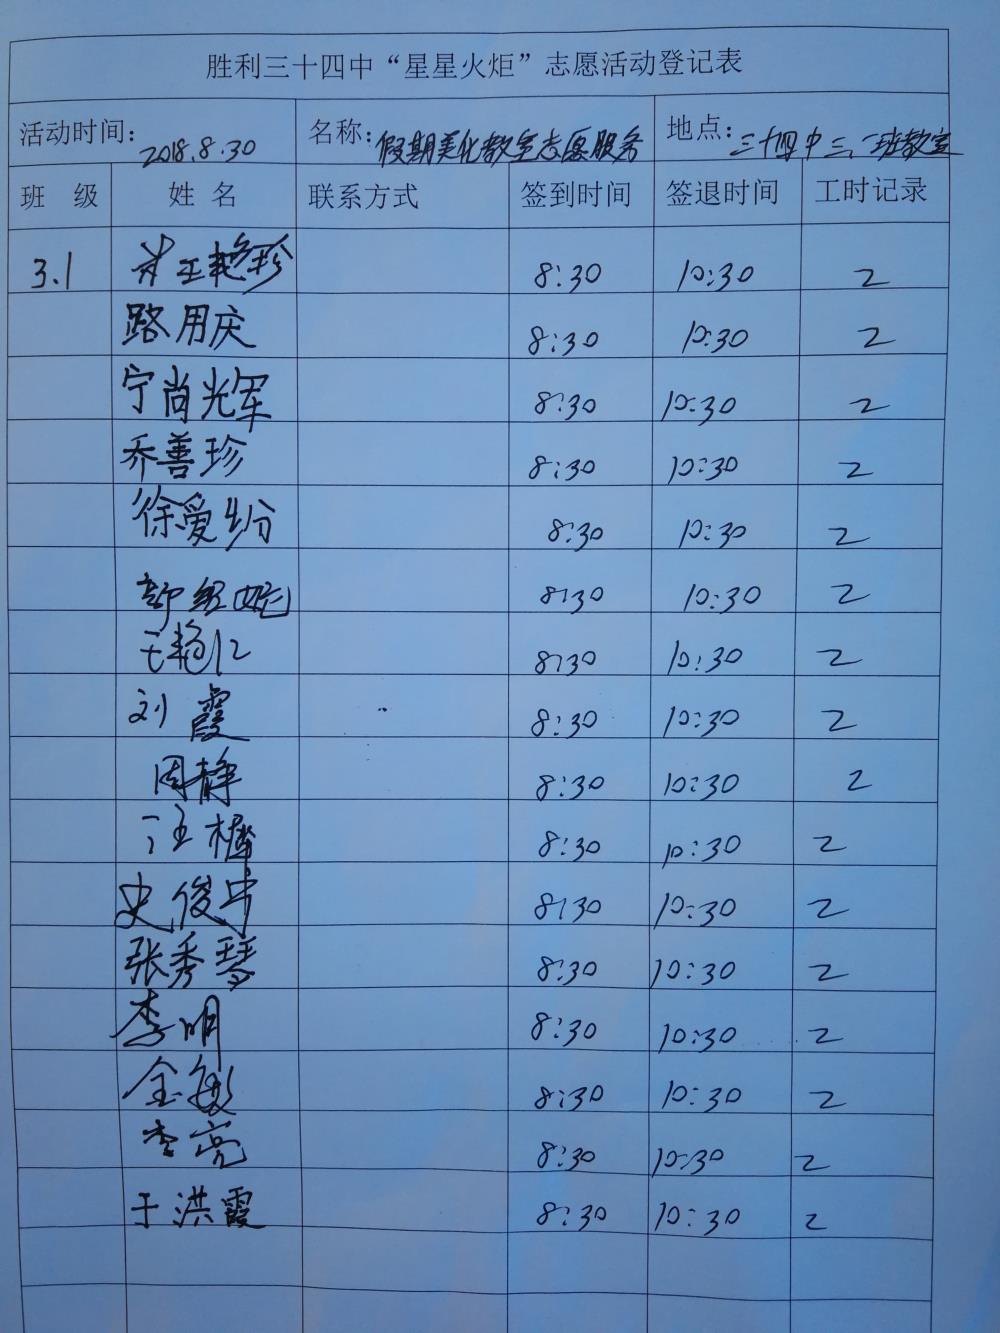 胜利三十四中“星星火炬”志愿活动登记表
活动时间：2018.8.30 名称：假期美化教室志愿服务 地点：三十四中三.一班教室
班 级 姓 名 联系方式 签到时间 签退时间 工时记录
3.1 王艳珍 8:30 10:30 2
路用庆 8:30 10:30 2
宁尚光军 8:30 10:30 2
乔善珍 8:30 10:30 2
徐爱 8:30 10:30 2
8:30 10:30 2
王艳 8:30 10:30 2
刘霞 8:30 10:30 2
周静 8:30 10:30 2
汪 8:30 10:30 2
史俊 8:30 10:30 2
张秀琴 8:30 10:30 2
李明 8:30 10:30 2
金 8:30 10:30 2
李亮 8:30 10:30 2
于洪霞 8:30 10:30 2